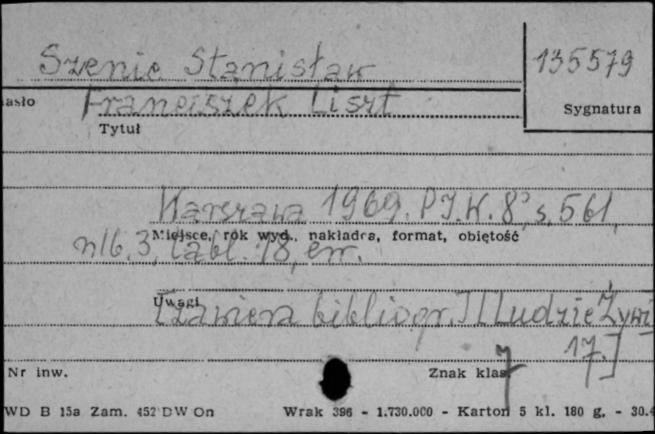 Szenic Stanisław
135579
asło
Franciszek Liszt
Sygnatura
Tytuł
Warszawa 1969. P.I.W. 8°, s. 561,
Miejsce, rok wyd., nakładca, format, objętość
nlb. 3, tabl. 18, err.
Uwagi
Zawiera bibliogr. [Ludzie Żywi
17.]
Nr inw.
Znak klas.
7
WD B 15a Zam. 452 DW On
Wrak 396 - 1.730.000 - Karton 5 kl. 180 g. - 30.4